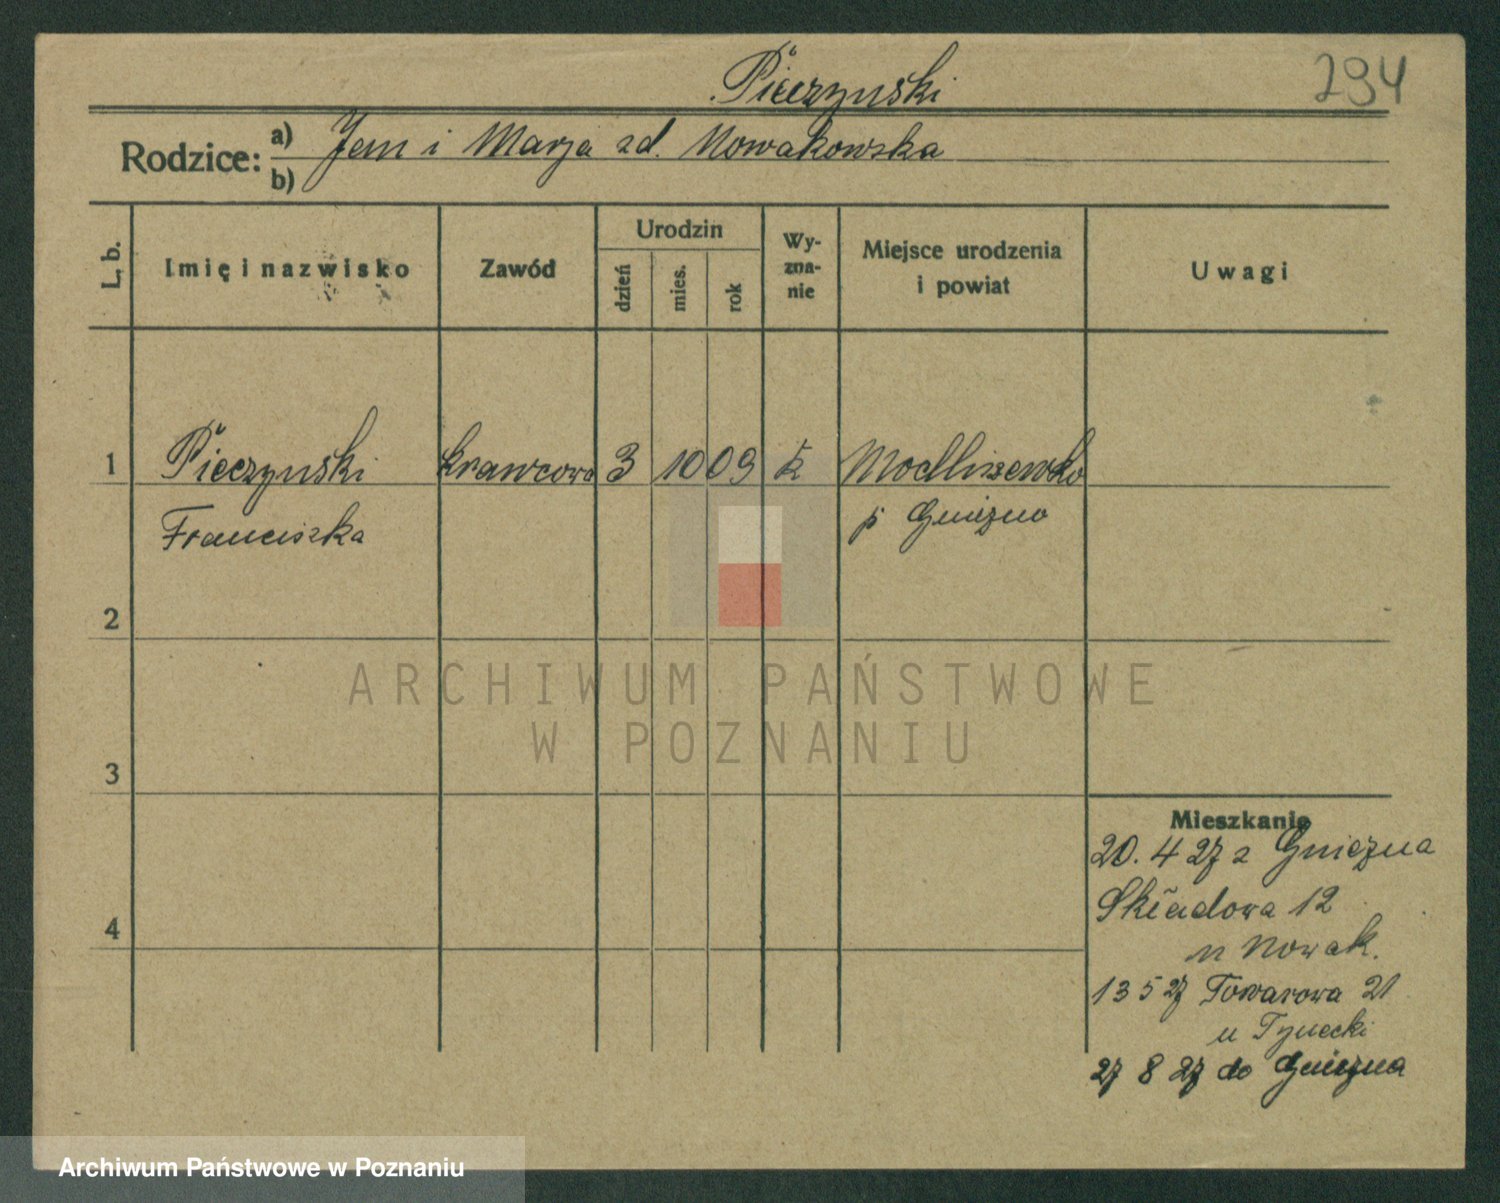 Pieczynski
294
Rodzice: a) Jan i Marja zd. Nowakowska
b)
L. b.
Imię i nazwisko
Zawód
Urodzin
dzień
mies.
rok
Wy-
zna-
nie
Miejsce urodzenia
i powiat
Uwagi
1 Pieczynski krawcowa 3 10 09 k Modliszewko
Franciszka p Gniezno
2
ARCHIWUM PAŃSTWOWE
W POZNANIU
3
Mieszkanie
20. 4 27 z Gniezna
Składowa 12
4
u Nowak.
13 5 27 Towarowa 21
u Tynecki
27 8 27 do Gniezna
Archiwum Państwowe w Poznaniu